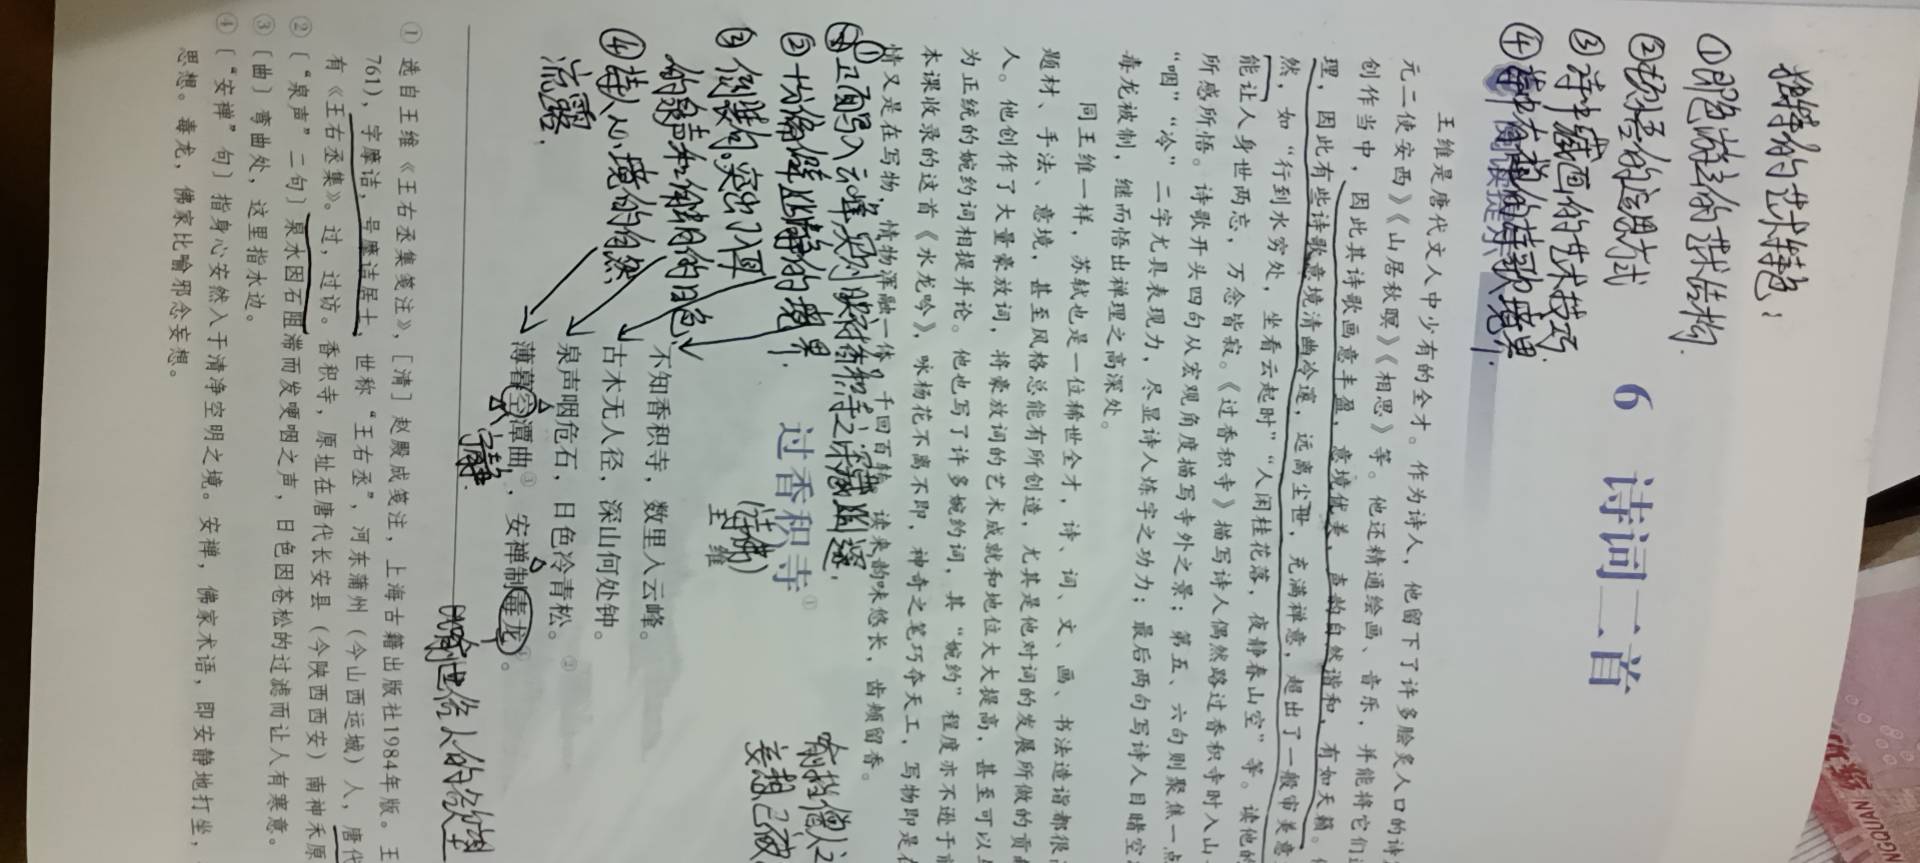 独特的艺术特色：
①
②
③诗中 的艺术技巧.
④
6 诗词二首
阅读提示
王维是唐代文人中少有的全才。作为诗人，他留下了许多脍炙人口的诗
元二使安西》《山居秋暝》《相思》等。他还精通绘画、音乐，并能将它们
创作当中，因此其诗歌画意丰盈，意境优美，声韵自然谐和，有如天籁。
理，因此有些诗歌意境清幽冷邃，远离尘世，充满禅意，超出了一般审美意
然，如“行到水穷处，坐看云起时”“人闲桂花落，夜静春山空”等。读他的
能让人身世两忘，万念皆寂。《过香积寺》描写诗人偶然路过香积寺时入山
所感所悟。诗歌开头四句从宏观角度描写寺外之景；第五、六句则聚焦一点
“咽”“冷”二字尤具表现力，尽显诗人炼字之功力；最后两句写诗人目睹空
毒龙被制，继而悟出禅理之高深处。
同王维一样，苏轼也是一位稀世全才，诗、词、文、画、书法造诣都很
题材、手法、意境，甚至风格总能有所创造，尤其是他对词的发展所做的贡献
人。他创作了大量豪放词，将豪放词的艺术成就和地位大大提高，甚至可以
为正统的婉约词相提并论。他也写了许多婉约词，其“婉约”程度亦不逊于
本课收录的这首《水龙吟》，咏杨花不离不即，神奇之笔巧夺天工，写物即是在
情又是在写物，情物浑融一体，千回百转。读来韵味悠长，齿颊留香。
①正面写入云峰,实则映衬香积寺之深藏幽邃.
喻指僧人之
②十分偏僻幽静的境界.
妄想已被
过香积寺①
(诗佛)
王 维
③倒装句。突出了入耳
的泉声和触目的日色
④诗人心境的自然
流露.
不知香积寺，数里入云峰。
古木无人径，深山何处钟。
泉声咽危石，日色冷青松。②
薄暮空潭曲③，安禅制毒龙④。
宁静.
比喻世俗人的欲望
① 选自王维《王右丞集笺注》，[清]赵殿成笺注，上海古籍出版社1984年版。王
761），字摩诘，号摩诘居士，世称“王右丞”，河东蒲州（今山西运城）人，唐代
有《王右丞集》。过，过访。香积寺，原址在唐代长安县（今陕西西安）南神禾原
② [“泉声”二句] 泉水因石阻滞而发哽咽之声，日色因苍松的过滤而让人有寒意。
③ [曲] 弯曲处，这里指水边。
④ [“安禅”句] 指身心安然入于清净空明之境。安禅，佛家术语，即安静地打坐，
思想。毒龙，佛家比喻邪念妄想。